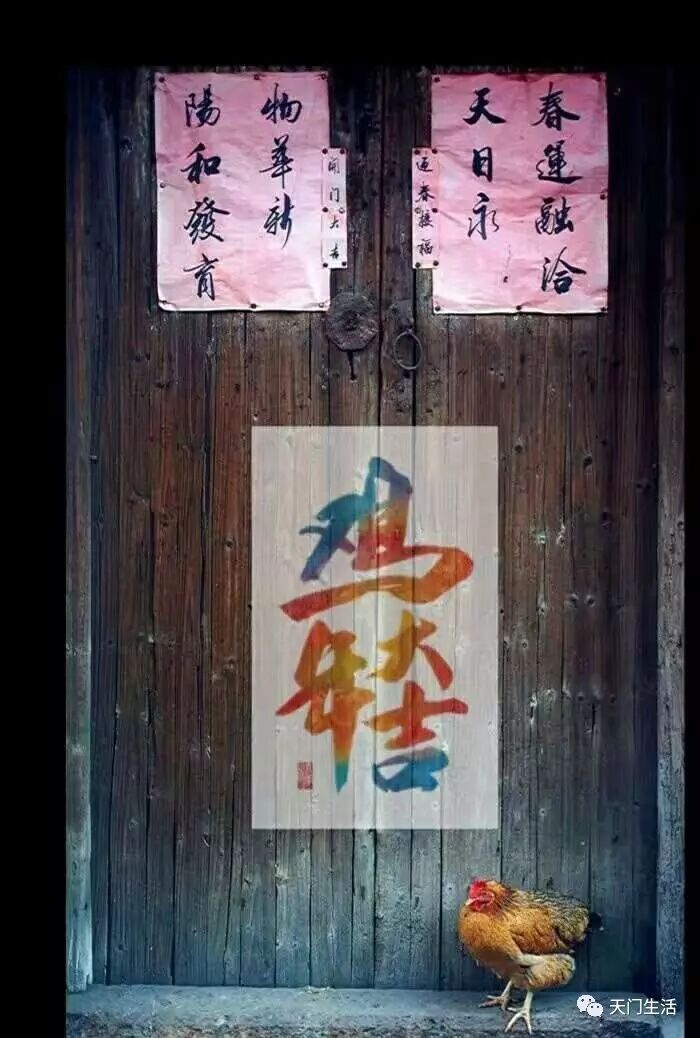 春運融洽
天日永
迎春接福
開门大吉
物華新
陽和發育
鸡年
大吉
天门生活